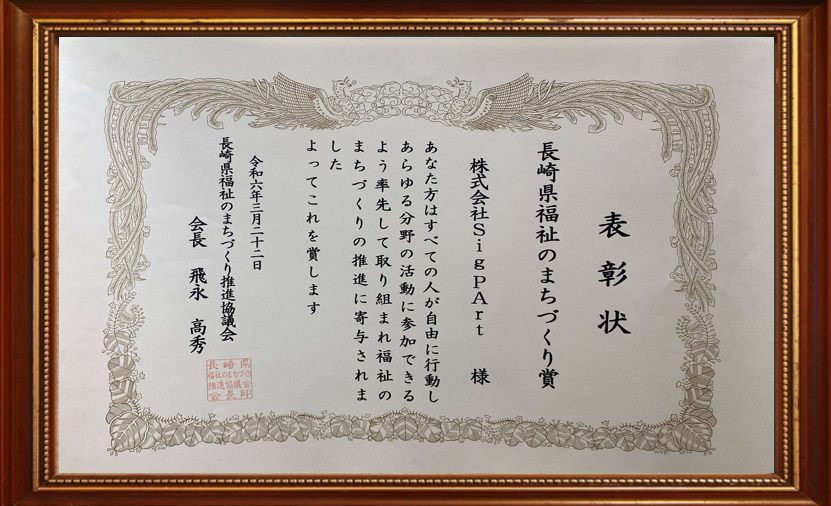 表彰状
長崎県福祉のまちづくり賞
株式会社SigPArt 様
あなた方はすべての人が自由に行動し
あらゆる分野の活動に参加できる
よう率先して取り組まれ福祉の
まちづくりの推進に寄与されま
した
よってこれを賞します
令和六年三月二十二日
長崎県福祉のまちづくり推進協議会
会長 飛永 高秀
長崎県
福祉のまちづくり
推進協議会
会長印